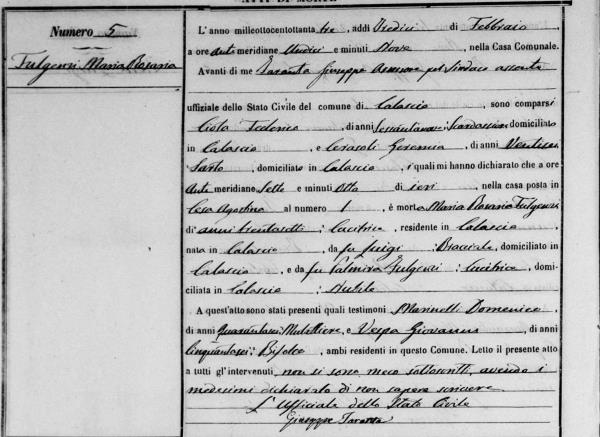 ATTI DI MORTE
Numero 5
Fulgenzi Maria Rosaria
L'anno milleottocentottanta tre, addì Tredici di Febbraio
a ore anti meridiane Undici e minuti Nove, nella Casa Comunale.
Avanti di me Taranta Giuseppe Assessore pel Sindaco assente
uffiziale dello Stato Civile del comune di Calascio, sono comparsi
Ciola Federico, di anni Sessantanove: Scardassiere domiciliato
in Calascio, e Cerasoli Geremia, di anni Ventisei
Sarto, domiciliato in Calascio, i quali mi hanno dichiarato che a ore
Anti meridiane Sette e minuti Otto di ieri, nella casa posta in
Casa Agostina al numero 1, è morta Maria Rosaria Fulgenzi
di anni trentasetti: Cucitrice, residente in Calascio,
nata in Calascio, da fu Luigi: Bracciale, domiciliato in
Calascio, e da fu Palmira Fulgenzi: Cucitrice, domi-
ciliata in Calascio: Nubile
A quest'atto sono stati presenti quali testimoni Marinelli Domenico
di anni Quarantasei: Mulattiere, e Vespa Giovanni, di anni
Cinquantasei: Bifolco, ambi residenti in questo Comune. Letto il presente atto
a tutti gl'intervenuti, non si sono meco sottoscritti, avendo i
medesimi dichiarato di non sapere scrivere
L'Uffiziale dello Stato Civile
Giuseppe Taranta